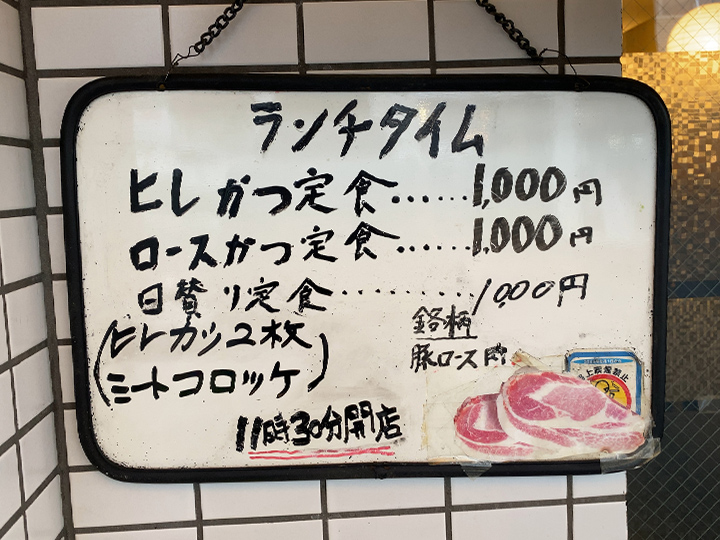 ランチタイム
ヒレかつ定食……1,000円
ロースかつ定食……1,000円
日賛り定食………1,000円
(ヒレカツ2枚
ミートコロッケ)
銘柄
豚ロース肉
11時30分開店
路上喫煙禁止